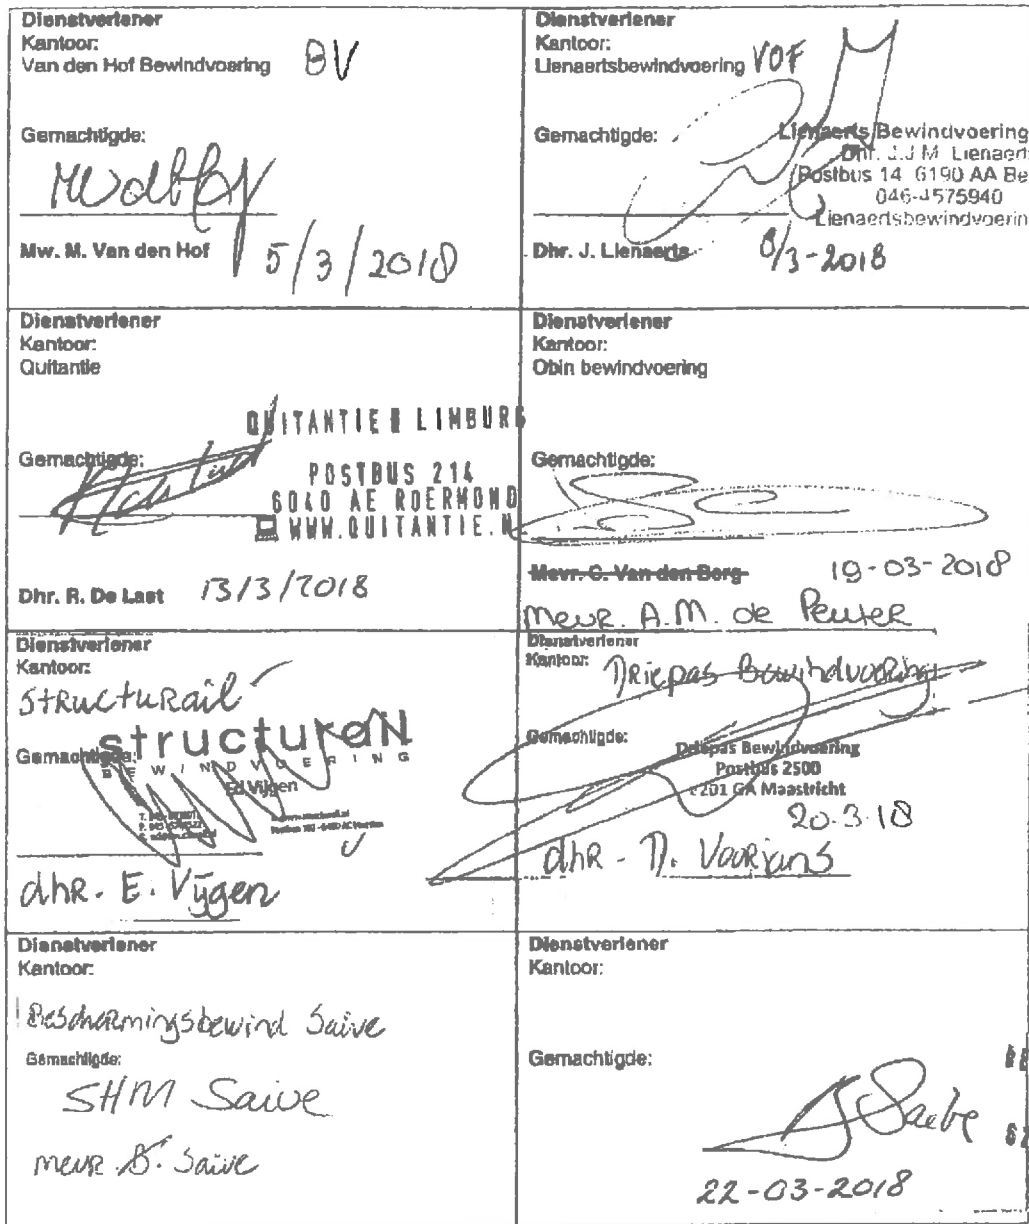 Dienstverlener
Kantoor:
Van den Hof Bewindvoering BV
Gemachtigde:
Mw. M. Van den Hof 5/3/2018
Dienstverlener
Kantoor:
Lienaertsbewindvoering VOF
Gemachtigde:
Lienaerts Bewindvoering
Dhr. J.J.M. Lienaert
Postbus 14 6190 AA Be
046-4575940
Lienaertsbewindvoerin
Dhr. J. Lienaerts 8/3-2018
Dienstverlener
Kantoor:
Quitantie
QUITANTIE LIMBURG
Gemachtigde:
POSTBUS 214
6040 AE ROERMOND
WWW.QUITANTIE.N
Dhr. R. De Last 13/3/2018
Dienstverlener
Kantoor:
Obin bewindvoering
Gemachtigde:
Mevr. C. Van den Berg 19-03-2018
Mevr. A.M. de Peuter
Dienstverlener
Kantoor:
Structurail
structurail
Gemachtigde:
BEWINDVOERING
Ed Vijgen
dhr. E. Vijgen
Dienstverlener
Kantoor: Driepas Bewindvoering
Gemachtigde:
Driepas Bewindvoering
Postbus 2500
6201 GA Maastricht
20-3-18
dhr. D.
Dienstverlener
Kantoor:
Beschermingsbewind Saive
Gemachtigde:
SHM Saive
mevr. S. Saive
Dienstverlener
Kantoor:
Gemachtigde:
22-03-2018